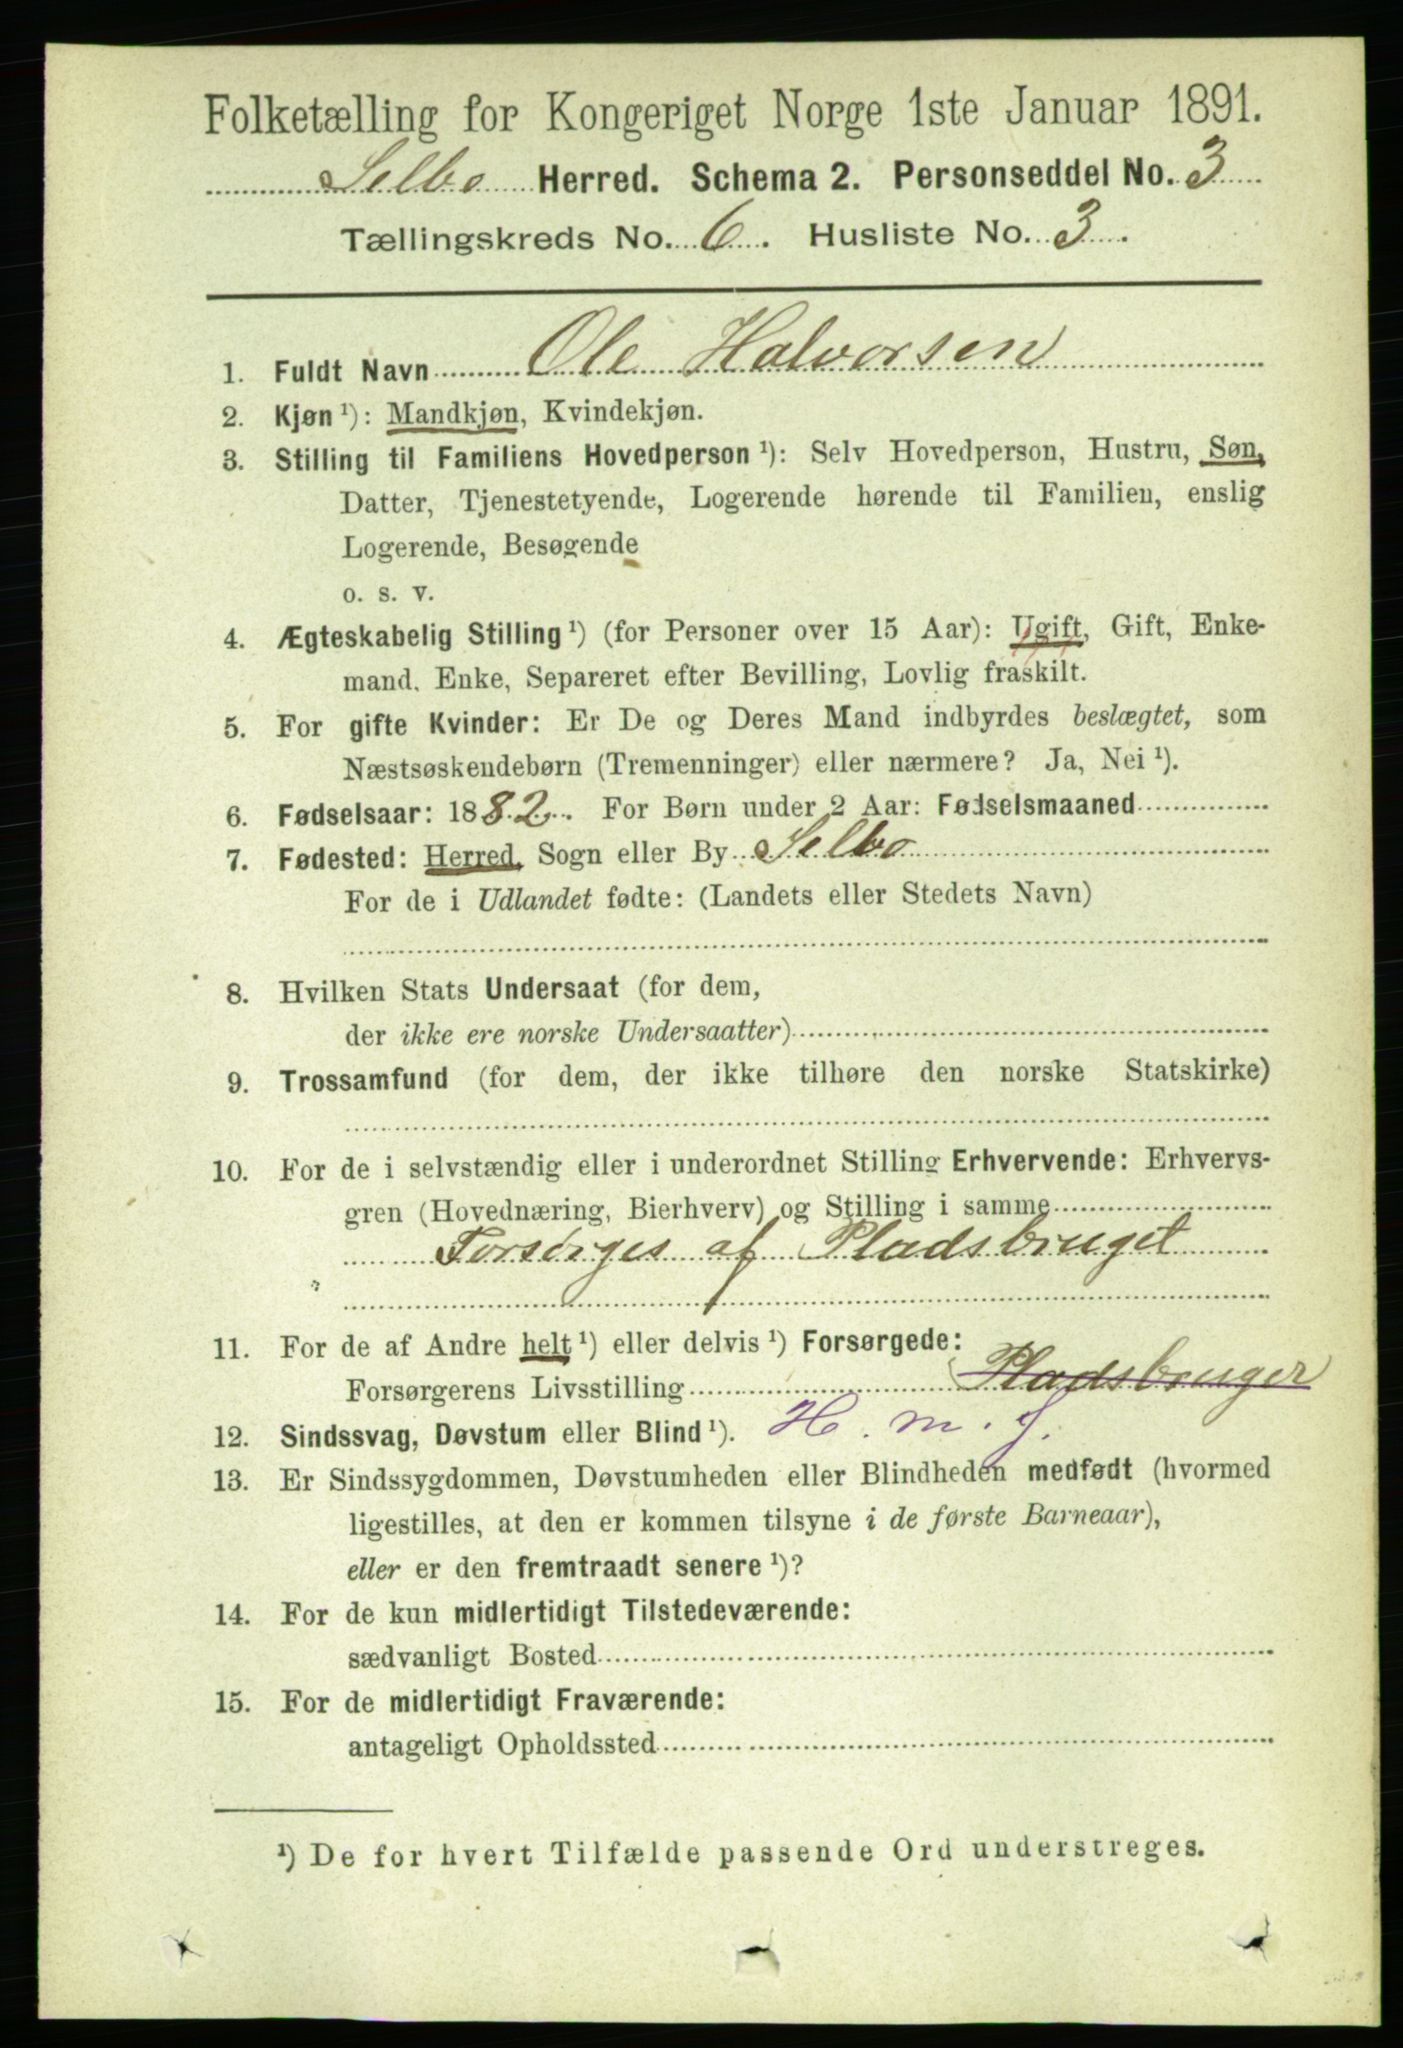 Folketælling for Kongeriget Norge 1ste Januar 1891.
Selbo Herred. Schema 2. Personseddel No. 3
Tællingskreds No. 6. Husliste No. 3.
1. Fuldt Navn Ole Halvorsen
2. Kjøn ¹): Mandkjøn, Kvindekjøn.
3. Stilling til Familiens Hovedperson ¹): Selv Hovedperson, Hustru, Søn,
Datter, Tjenestetyende, Logerende hørende til Familien, enslig
Logerende, Besøgende
o. s. v.
4. Ægteskabelig Stilling ¹) (for Personer over 15 Aar): Ugift, Gift, Enke-
mand, Enke, Separeret efter Bevilling, Lovlig fraskilt.
5. For gifte Kvinder: Er De og Deres Mand indbyrdes beslægtet, som
Næstsøskendebørn (Tremenninger) eller nærmere? Ja, Nei ¹).
6. Fødselsaar: 1882. For Børn under 2 Aar: Fødselsmaaned
7. Fødested: Herred, Sogn eller By Selbo
For de i Udlandet fødte: (Landets eller Stedets Navn)
8. Hvilken Stats Undersaat (for dem,
der ikke ere norske Undersaatter)
9. Trossamfund (for dem, der ikke tilhøre den norske Statskirke)
10. For de i selvstændig eller i underordnet Stilling Erhvervende: Erhvervs-
gren (Hovednæring, Bierhverv) og Stilling i samme
Forsørges af Pladsbruget
11. For de af Andre helt ¹) eller delvis ¹) Forsørgede:
Forsørgerens Livsstilling Pladsbruger
12. Sindssvag, Døvstum eller Blind ¹). H. m. J.
13. Er Sindssygdommen, Døvstumheden eller Blindheden medfødt (hvormed
ligestilles, at den er kommen tilsyne i de første Barneaar),
eller er den fremtraadt senere ¹)?
14. For de kun midlertidigt Tilstedeværende:
sædvanligt Bosted
15. For de midlertidigt Fraværende:
antageligt Opholdssted
¹) De for hvert Tilfælde passende Ord understreges.